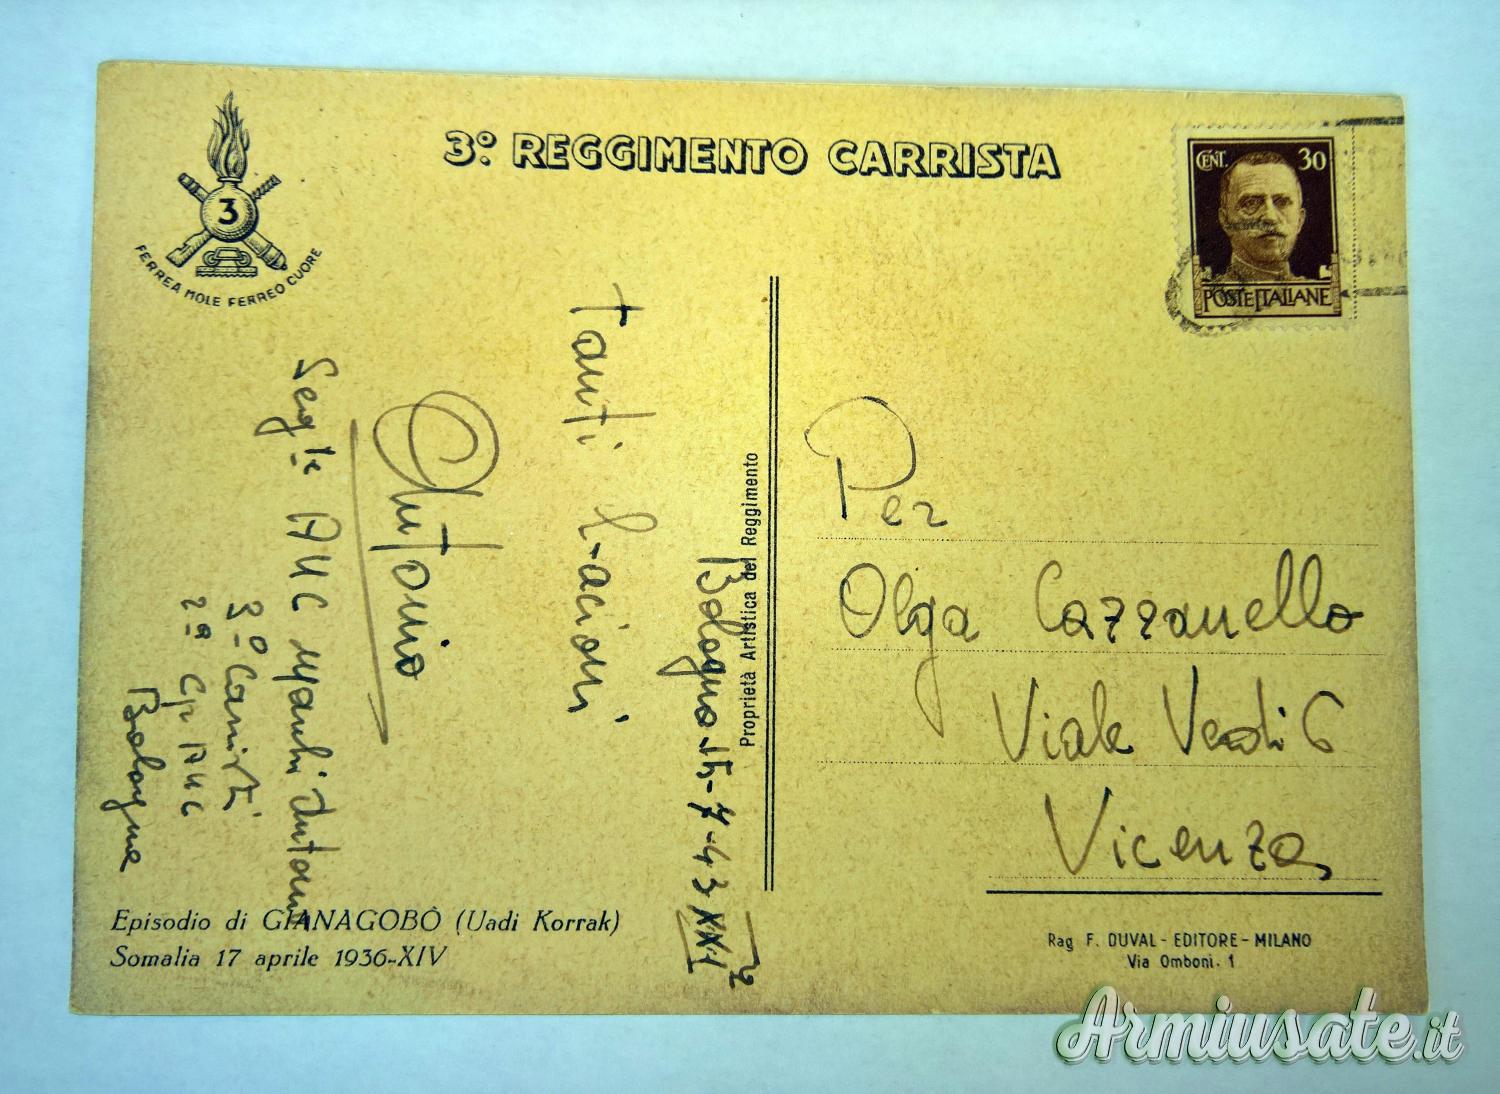 3º REGGIMENTO CARRISTA
3
FERREA MOLE FERREO CUORE
CENT. 30
POSTE ITALIANE
Bologna 15-7-43 XXI
Tanti
Antonio
AUC Antonio
3º Carristi
2ª Cp AUC
Bologna
Proprietà Artistica del Reggimento
Per
Olga Cazzanello
Viale Verdi 6
Vicenza
Episodio di GIANAGOBÒ (Uadi Korrak)
Somalia 17 aprile 1936-XIV
Rag F. DUVAL - EDITORE - MILANO
Via Omboni. 1
Armiusate.it